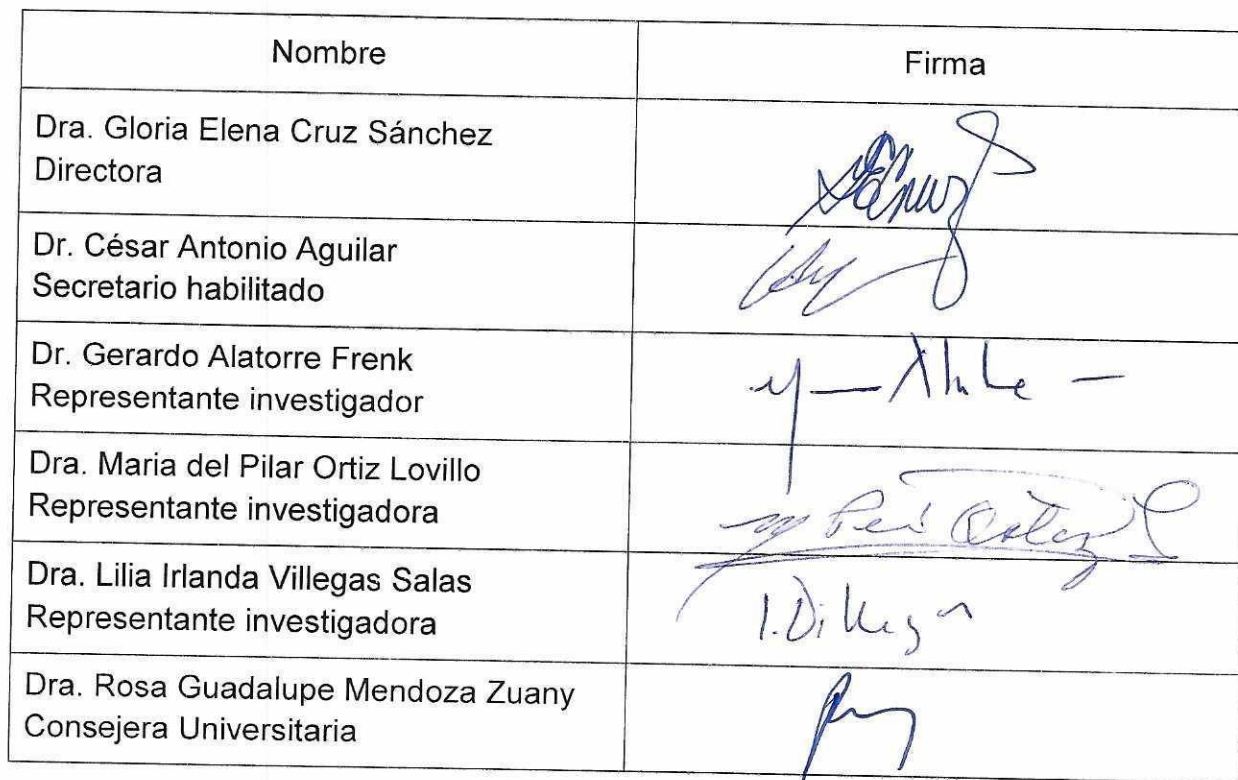 Nombre
Firma
Dra. Gloria Elena Cruz Sánchez
Directora
Dr. César Antonio Aguilar
Secretario habilitado
Dr. Gerardo Alatorre Frenk
Representante investigador
Dra. Maria del Pilar Ortiz Lovillo
Representante investigadora
Dra. Lilia Irlanda Villegas Salas
Representante investigadora
Dra. Rosa Guadalupe Mendoza Zuany
Consejera Universitaria